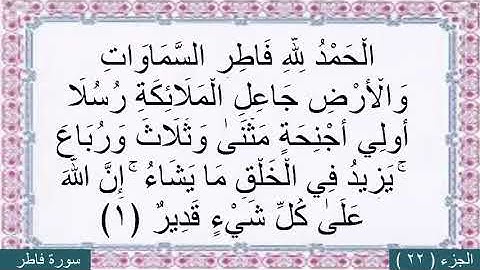 الْحَمْدُ لِلَّهِ فَاطِرِ السَّمَاوَاتِ
وَالْأَرْضِ جَاعِلِ الْمَلَائِكَةِ رُسُلًا
أُولِي أَجْنِحَةٍ مَثْنَىٰ وَثُلَاثَ وَرُبَاعَ
ۚ يَزِيدُ فِي الْخَلْقِ مَا يَشَاءُ ۚ إِنَّ اللَّهَ
عَلَىٰ كُلِّ شَيْءٍ قَدِيرٌ (١)
الجزء ( ٢٢ )
سورة فاطر